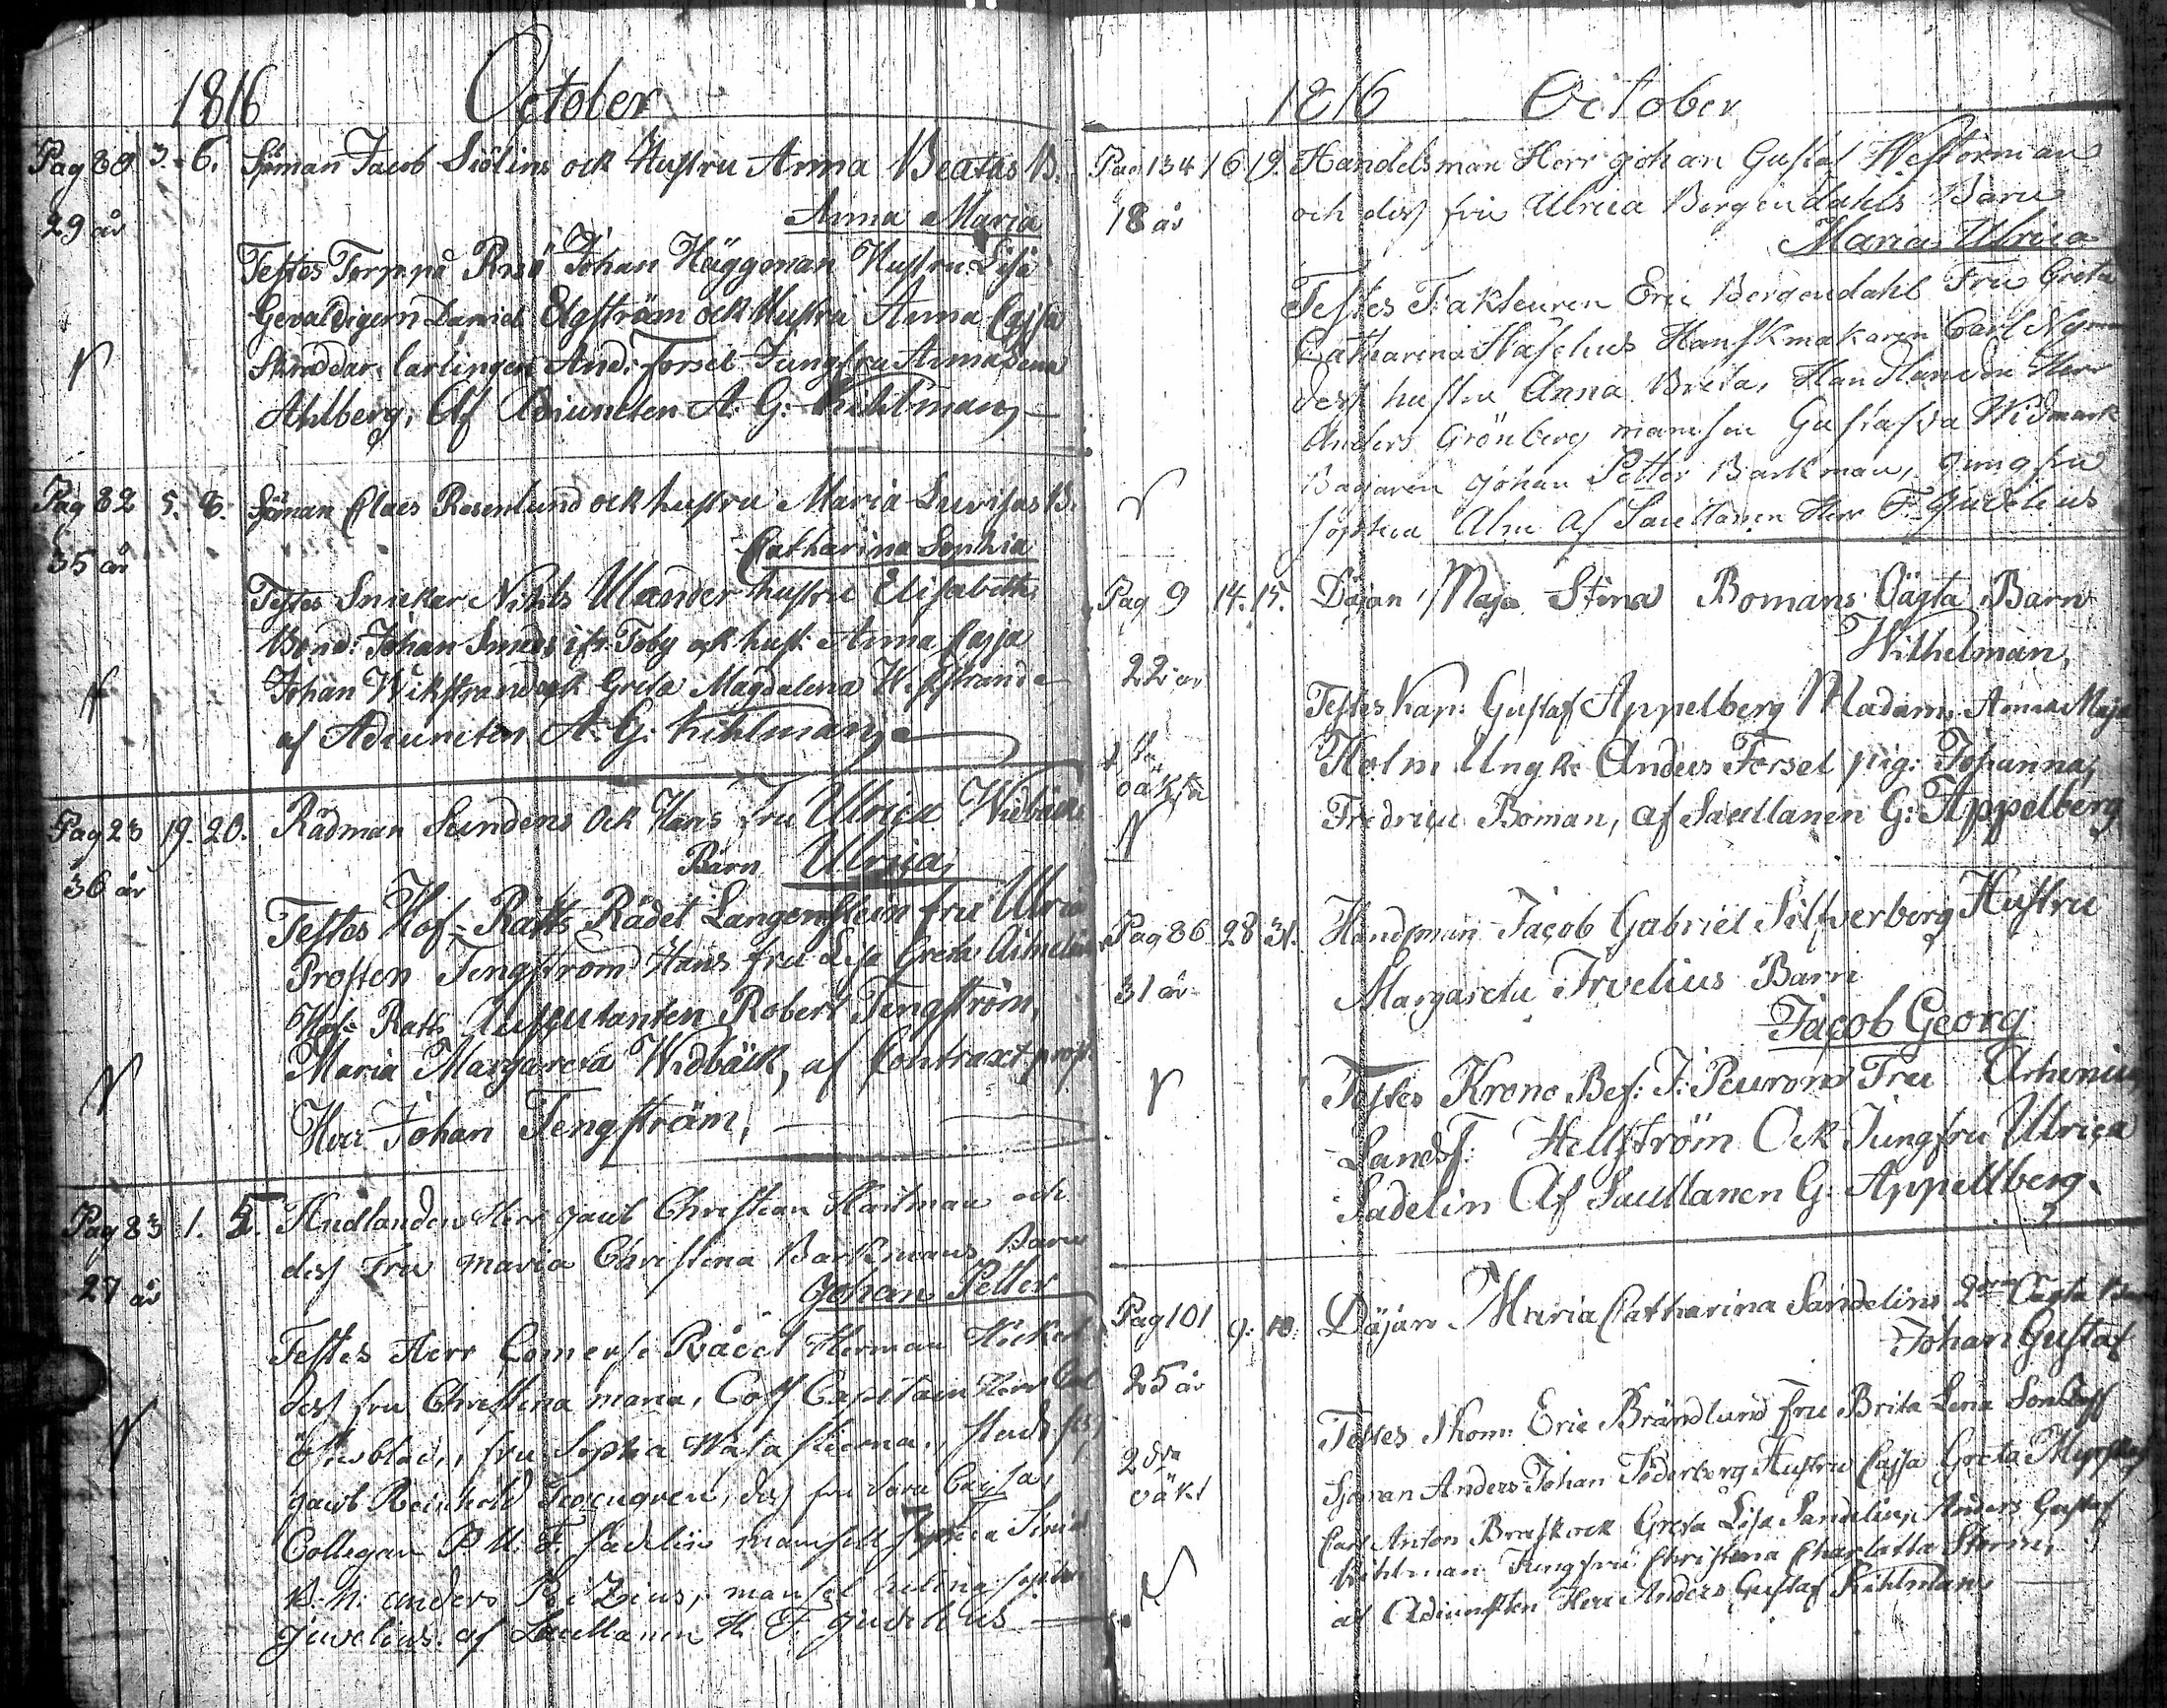 1816 October
Pag 88 3. 6. Sjöman Jacob Siölins ock Hustru Anna Beatas B.
29 år Anna Maria
Testes Torp. på Johan Häggman Hustru Lisa
Gevaldigern Daniel Elgström ock Hustru Anna Cajsa
Skräddar lärlingen And: Forsel Jungfru Anna Lena
Ahlberg, Af Adiuncten A: G: Kihlman,
Pag 82 5. 8. Sjöman Claes Rosenlund ock hustru Maria Luvisas B.
35 år Catharina Sophia
Testes Snickar Nihls Ulander hustru Elisabeth
Bond: Johan Smeds ifr. Toby ock hust: Anna Cajsa
Johan Wikstrand ock Greta Magdalena Wikstrand
af Adiuncten A: G: Kihlman,
Pag 23 19. 20. Rådman Sundens Ock Hans Fru Ulrica Widbäcks
36 år Barn Ulrica,
Testes Hof-Rätts Rådet Langenstein fru Ulrica
Prosten Tengström Hans fru Lisa Greta
Hof-Rätts Auscultanten Robert Tengström,
Maria Margareta Widbäck, af Contract prost
Herr Johan Tengström,
Pag 83 1. 5. Handlanden Herr Jacob Christian Hartman och
27 år dess Fru Maria Christina Barkmans Barn
Johan Petter
Testes Herr Comerse Rådet Herman
dess fru Christina maria, Coff Capitain Herr Carl
fru Sophia
Jacob Reinhold dess fru Cajsa,
Collegan P. U. F. Sadelin mamsell Sophia
B. N. anders Rizius, mamsel helena sophia
Juvelius. af Sacellanen H. F. Juvelius
1816 October
Pag 134 16 19. Handelsman Herr Johan Gustaf Westerman
18 år och dess fru Ulrica Bergendahls Barn
Maria Ulrica
Testes Fakteuren Eric Bergendahl Fru Greta
Catharina Hanskmakaren Carl
dess hustru Anna Brita, Handlanden Herr
Anders Grönberg mamsell Gustafva Widmark
Bagaren Johan Petter Barkman, Jungfru
Sophia Alm Af Sacellanen Herr F. Juvelius
Pag 9 14. 15. Däjan Maja Stina Bomans Oägta Barn
Wilhelmina,
22 år
Testes Kap: Gustaf Appelberg Madam Anna Maja
Holm Ungk: Anders Forsel pig: Johanna
oäkta
Fredrica Boman, af Sacellanen G: Appelberg
Pag 86 28 31. Handsman Jacob Gabriel Silfverberg Hustru
31 år Margareta Irvelius Barn
Jacob Georg
Testes Krono Bef: J: Peuron Fru Arhenius
Landsf: Hellström Ock Jungfru Ulrica
Sadelin Af Sacellanen G: Appellberg.
Pag 101 9. 10. Däjan Maria Catharina Sandelins 2dra Oägta
Johan Gustaf
25 år
Testes Skom: Eric Brändlund fru Brita Lena
2dra oäkt Sjöman Anders Johan Söderberg Hustru Cajsa Greta
Carl Anton Brask ock Greta Lisa Sandelin, Anders Gustaf
Kihlman Jungfru Christina Charlotta
af Adiuncten Herr Anders Gustaf Kihlman,